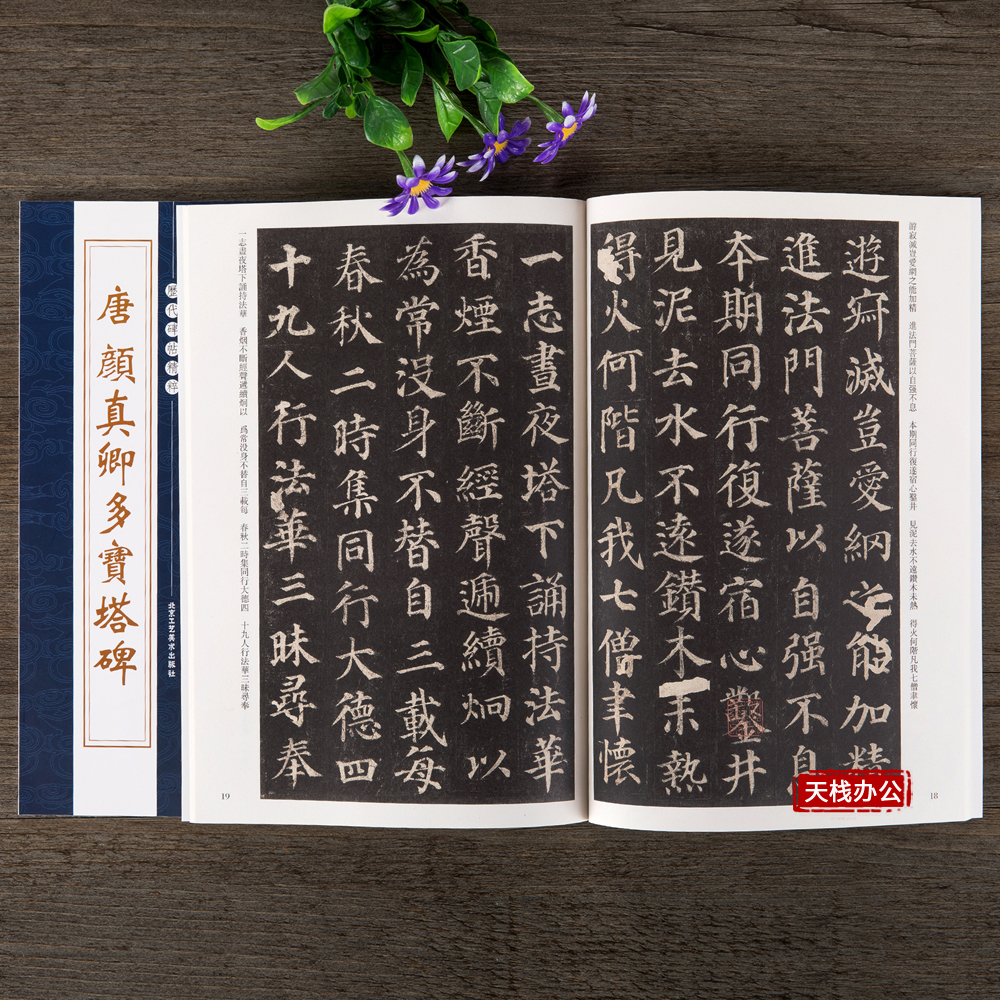 唐 顔真卿多寶塔碑
歷代碑帖精粹
北京工艺美术出版社
游寂滅豈愛網之能加精　進法門菩薩以自强不息　本期同行復遂宿心鑿井　見泥去水不遠鑽木未熱　得火何階凡我七僧聿懷
遊寂滅豈愛網之能加精
進法門菩薩以自强不息
本期同行復遂宿心鑿井
見泥去水不遠鑽木未熱
得火何階凡我七僧聿懷
18
一志晝夜塔下誦持法華
香煙不斷經聲遞續炯以
為常没身不替自三載每
春秋二時集同行大德四
十九人行法華三昧尋奉
一志晝夜塔下誦持法華　香烟不斷經聲遞續炯以　爲常没身不替自三載每　春秋二時集同行大德四　十九人行法華三昧尋奉
19
天栈办公